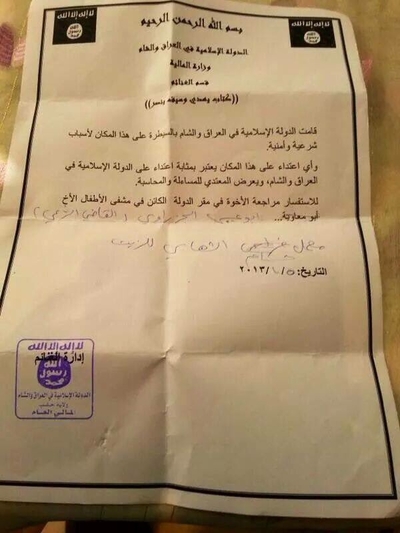 لا إله إلا الله
الله
رسول
محمد
لا إله إلا الله
الله
رسول
محمد
بسم الله الرحمن الرحيم
الدولة الإسلامية في العراق والشام
وزارة المالية
قسم الغنائم
((كتاب يهدي وسيف ينصر))
قامت الدولة الإسلامية في العراق والشام بالسيطرة على هذا المكان لأسباب
شرعية وأمنية.
وأي اعتداء على هذا المكان يعتبر بمثابة اعتداء على الدولة الإسلامية في
العراق والشام، ويعرض المعتدي للمساءلة والمحاسبة.
للاستفسار مراجعة الأخوة في مقر الدولة الكائن في مشفى الأطفال الأخ
أبو معاوية...
التاريخ: ٢٠١٣/
لا إله إلا الله
إدارة الغنائم
الله
رسول
محمد
الدولة الإسلامية في العراق والشام
ولاية حلب